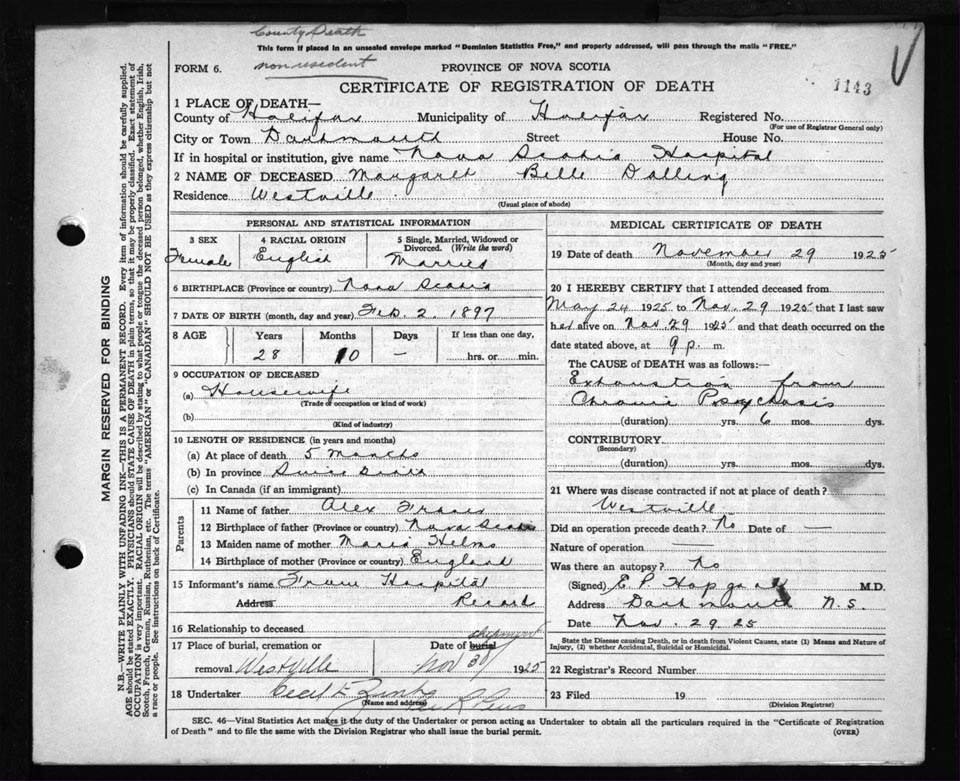 County Death
This form if placed in an unsealed envelope marked "Dominion Statistics Free," and properly addressed, will pass through the mails "FREE."
FORM 6. non resident PROVINCE OF NOVA SCOTIA
CERTIFICATE OF REGISTRATION OF DEATH 1143
1 PLACE OF DEATH—
County of Halifax Municipality of Halifax Registered No.
(For use of Registrar General only)
City or Town Dartmouth Street House No.
If in hospital or institution, give name Nova Scotia Hospital
2 NAME OF DECEASED Margaret Belle Dalling
Residence Westville
(Usual place of abode)
PERSONAL AND STATISTICAL INFORMATION
3 SEX 4 RACIAL ORIGIN 5 Single, Married, Widowed or Divorced. (Write the word)
Female English Married
6 BIRTHPLACE (Province or country) Nova Scotia
7 DATE OF BIRTH (month, day and year) Feb. 2. 1897
8 AGE Years Months Days If less than one day,
28 10 — hrs. or min.
9 OCCUPATION OF DECEASED
(a) Housewife
(Trade or occupation or kind of work)
(b)
(Kind of industry)
10 LENGTH OF RESIDENCE (in years and months)
(a) At place of death 5 Months
(b) In province Since
(c) In Canada (if an immigrant)
Parents
11 Name of father Alex
12 Birthplace of father (Province or country) Nova Scotia
13 Maiden name of mother Maria Helms
14 Birthplace of mother (Province or country) England
15 Informant's name From Hospital
Address Record
16 Relationship to deceased
17 Place of burial, cremation or Date of burial shipment
removal Westville Nov 30 1925
18 Undertaker Cecil E.
(Name and address)
MEDICAL CERTIFICATE OF DEATH
19 Date of death November 29 1925
(Month, day and year)
20 I HEREBY CERTIFY that I attended deceased from
May 24 1925 to Nov. 29 1925 that I last saw
her alive on Nov 29 1925 and that death occurred on the
date stated above, at 9 p. m.
The CAUSE of DEATH was as follows:—
Exhaustion from
Chronic Psychosis
(duration) yrs. 6 mos. dys.
CONTRIBUTORY.
(Secondary)
(duration) yrs. mos. dys.
21 Where was disease contracted if not at place of death?
Westville
Did an operation precede death? No Date of —
Nature of operation —
Was there an autopsy? No
(Signed) E. P. M.D.
Address Dartmouth N.S.
Date Nov. 29. 25
State the Disease causing Death, or in death from Violent Causes, state (1) Means and Nature of
Injury, (2) whether Accidental, Suicidal or Homicidal.
22 Registrar's Record Number
23 Filed 19
(Division Registrar)
SEC. 46—Vital Statistics Act makes it the duty of the Undertaker or person acting as Undertaker to obtain all the particulars required in the "Certificate of Registration
of Death" and to file the same with the Division Registrar who shall issue the burial permit. (OVER)
MARGIN RESERVED FOR BINDING
N.B.—WRITE PLAINLY WITH UNFADING INK—THIS IS A PERMANENT RECORD. Every item of information should be carefully supplied.
AGE should be stated EXACTLY. PHYSICIANS should STATE CAUSE OF DEATH in plain terms, so that it may be properly classified. Exact statement of
OCCUPATION is very important. RACIAL ORIGIN will be described by stating to what people or tongue the deceased person belonged, whether English, Irish,
Scotch, French, German, Russian, Ruthenian, etc. The terms "AMERICAN" or "CANADIAN" SHOULD NOT BE USED as they express citizenship but not
a race or people. See instructions on back of Certificate.